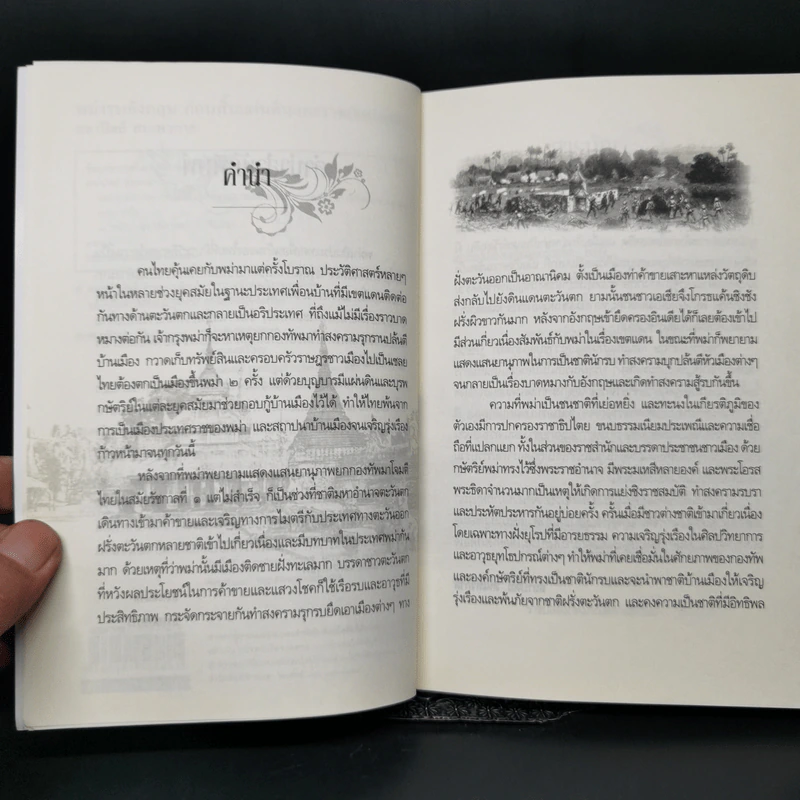 คำนำ
คนไทยคุ้นเคยกับพม่ามาแต่ครั้งโบราณ ประวัติศาสตร์หลายๆ
หน้าในหลายช่วงยุคสมัยในฐานะประเทศเพื่อนบ้านที่มีเขตแดนติดต่อ
กันทางด้านตะวันตกและกลายเป็นอริประเทศ ที่ถึงแม้ไม่มีเรื่องราวบาด
หมางต่อกัน เจ้ากรุงพม่าก็จะหาเหตุยกกองทัพมาทำสงครามรุกรานปล้นตี
บ้านเมือง กวาดเก็บทรัพย์สินและครอบครัวราษฎรชาวเมืองไปเป็นเชลย
ไทยต้องตกเป็นเมืองขึ้นพม่า ๒ ครั้ง แต่ด้วยบุญบารมีแผ่นดินและบุรพ
กษัตริย์ในแต่ละยุคสมัยมาช่วยกอบกู้บ้านเมืองไว้ได้ ทำให้ไทยพ้นจาก
การเป็นเมืองประเทศราชของพม่า และสถาปนาบ้านเมืองจนเจริญรุ่งเรือง
ก้าวหน้ามาจนทุกวันนี้
หลังจากที่พม่าพยายามแสดงแสนยานุภาพยกกองทัพมาโจมตี
ไทยในสมัยรัชกาลที่ ๑ แต่ไม่สำเร็จ ก็เป็นช่วงที่ชาติมหาอำนาจตะวันตก
เดินทางเข้ามาค้าขายและเจริญทางการไมตรีกับประเทศทางตะวันออก
ฝรั่งตะวันตกหลายชาติเข้าไปเกี่ยวเนื่องและมีบทบาทในประเทศพม่ากัน
มาก ด้วยเหตุที่ว่าพม่านั้นมีเมืองติดชายฝั่งทะเลมาก บรรดาชาวตะวันตก
ที่หวังผลประโยชน์ในการค้าขายและแสวงโชคก็ใช้เรือรบและอาวุธที่มี
ประสิทธิภาพ กระจัดกระจายกันทำสงครามรุกรบยึดเอาเมืองต่างๆ ทาง
ฝั่งตะวันออกเป็นอาณานิคม ตั้งเป็นเมืองทำค้าขายเสาะหาแหล่งวัตถุดิบ
ส่งกลับไปยังดินแดนตะวันตก ยามนั้นชนชาวเอเชียจึงโกรธแค้นชิงชัง
ฝรั่งผิวขาวกันมาก หลังจากอังกฤษเข้ายึดครองอินเดียได้ก็เลยต้องเข้าไป
มีส่วนเกี่ยวเนื่องสัมพันธ์กับพม่าในเรื่องเขตแดน ในขณะที่พม่าก็พยายาม
แสดงแสนยานุภาพในการเป็นชาตินักรบ ทำสงครามบุกปล้นตีหัวเมืองต่างๆ
จนกลายเป็นเรื่องบาดหมางกับอังกฤษและเกิดทำสงครามสู้รบกันขึ้น
ความที่พม่าเป็นชนชาติที่เย่อหยิ่ง และทะนงในเกียรติภูมิของ
ตัวเองมีการปกครองราชาธิปไตย ขนบธรรมเนียมประเพณีและความเชื่อ
ถือที่แปลกแยก ทั้งในส่วนของราชสำนักและบรรดาประชาชนชาวเมือง ด้วย
กษัตริย์พม่าทรงไว้ซึ่งพระราชอำนาจ มีพระมเหสีหลายองค์ และพระโอรส
พระธิดาจำนวนมากเป็นเหตุให้เกิดการแย่งชิงราชสมบัติ ทำสงครามรบรา
และประหัตประหารกันอยู่บ่อยครั้ง ครั้นเมื่อมีชาวต่างชาติเข้ามาเกี่ยวเนื่อง
โดยเฉพาะทางฝั่งยุโรปที่มีอารยธรรม ความเจริญรุ่งเรืองในศิลปวิทยาการ
และอาวุธยุทโธปกรณ์ต่างๆ ทำให้พม่าที่เคยเชื่อมั่นในศักยภาพของกองทัพ
และองค์กษัตริย์ที่ทรงเป็นชาตินักรบและจะนำพาชาติบ้านเมืองให้เจริญ
รุ่งเรืองและพ้นภัยจากชาติฝรั่งตะวันตก และคงความเป็นชาติที่มีอิทธิพล